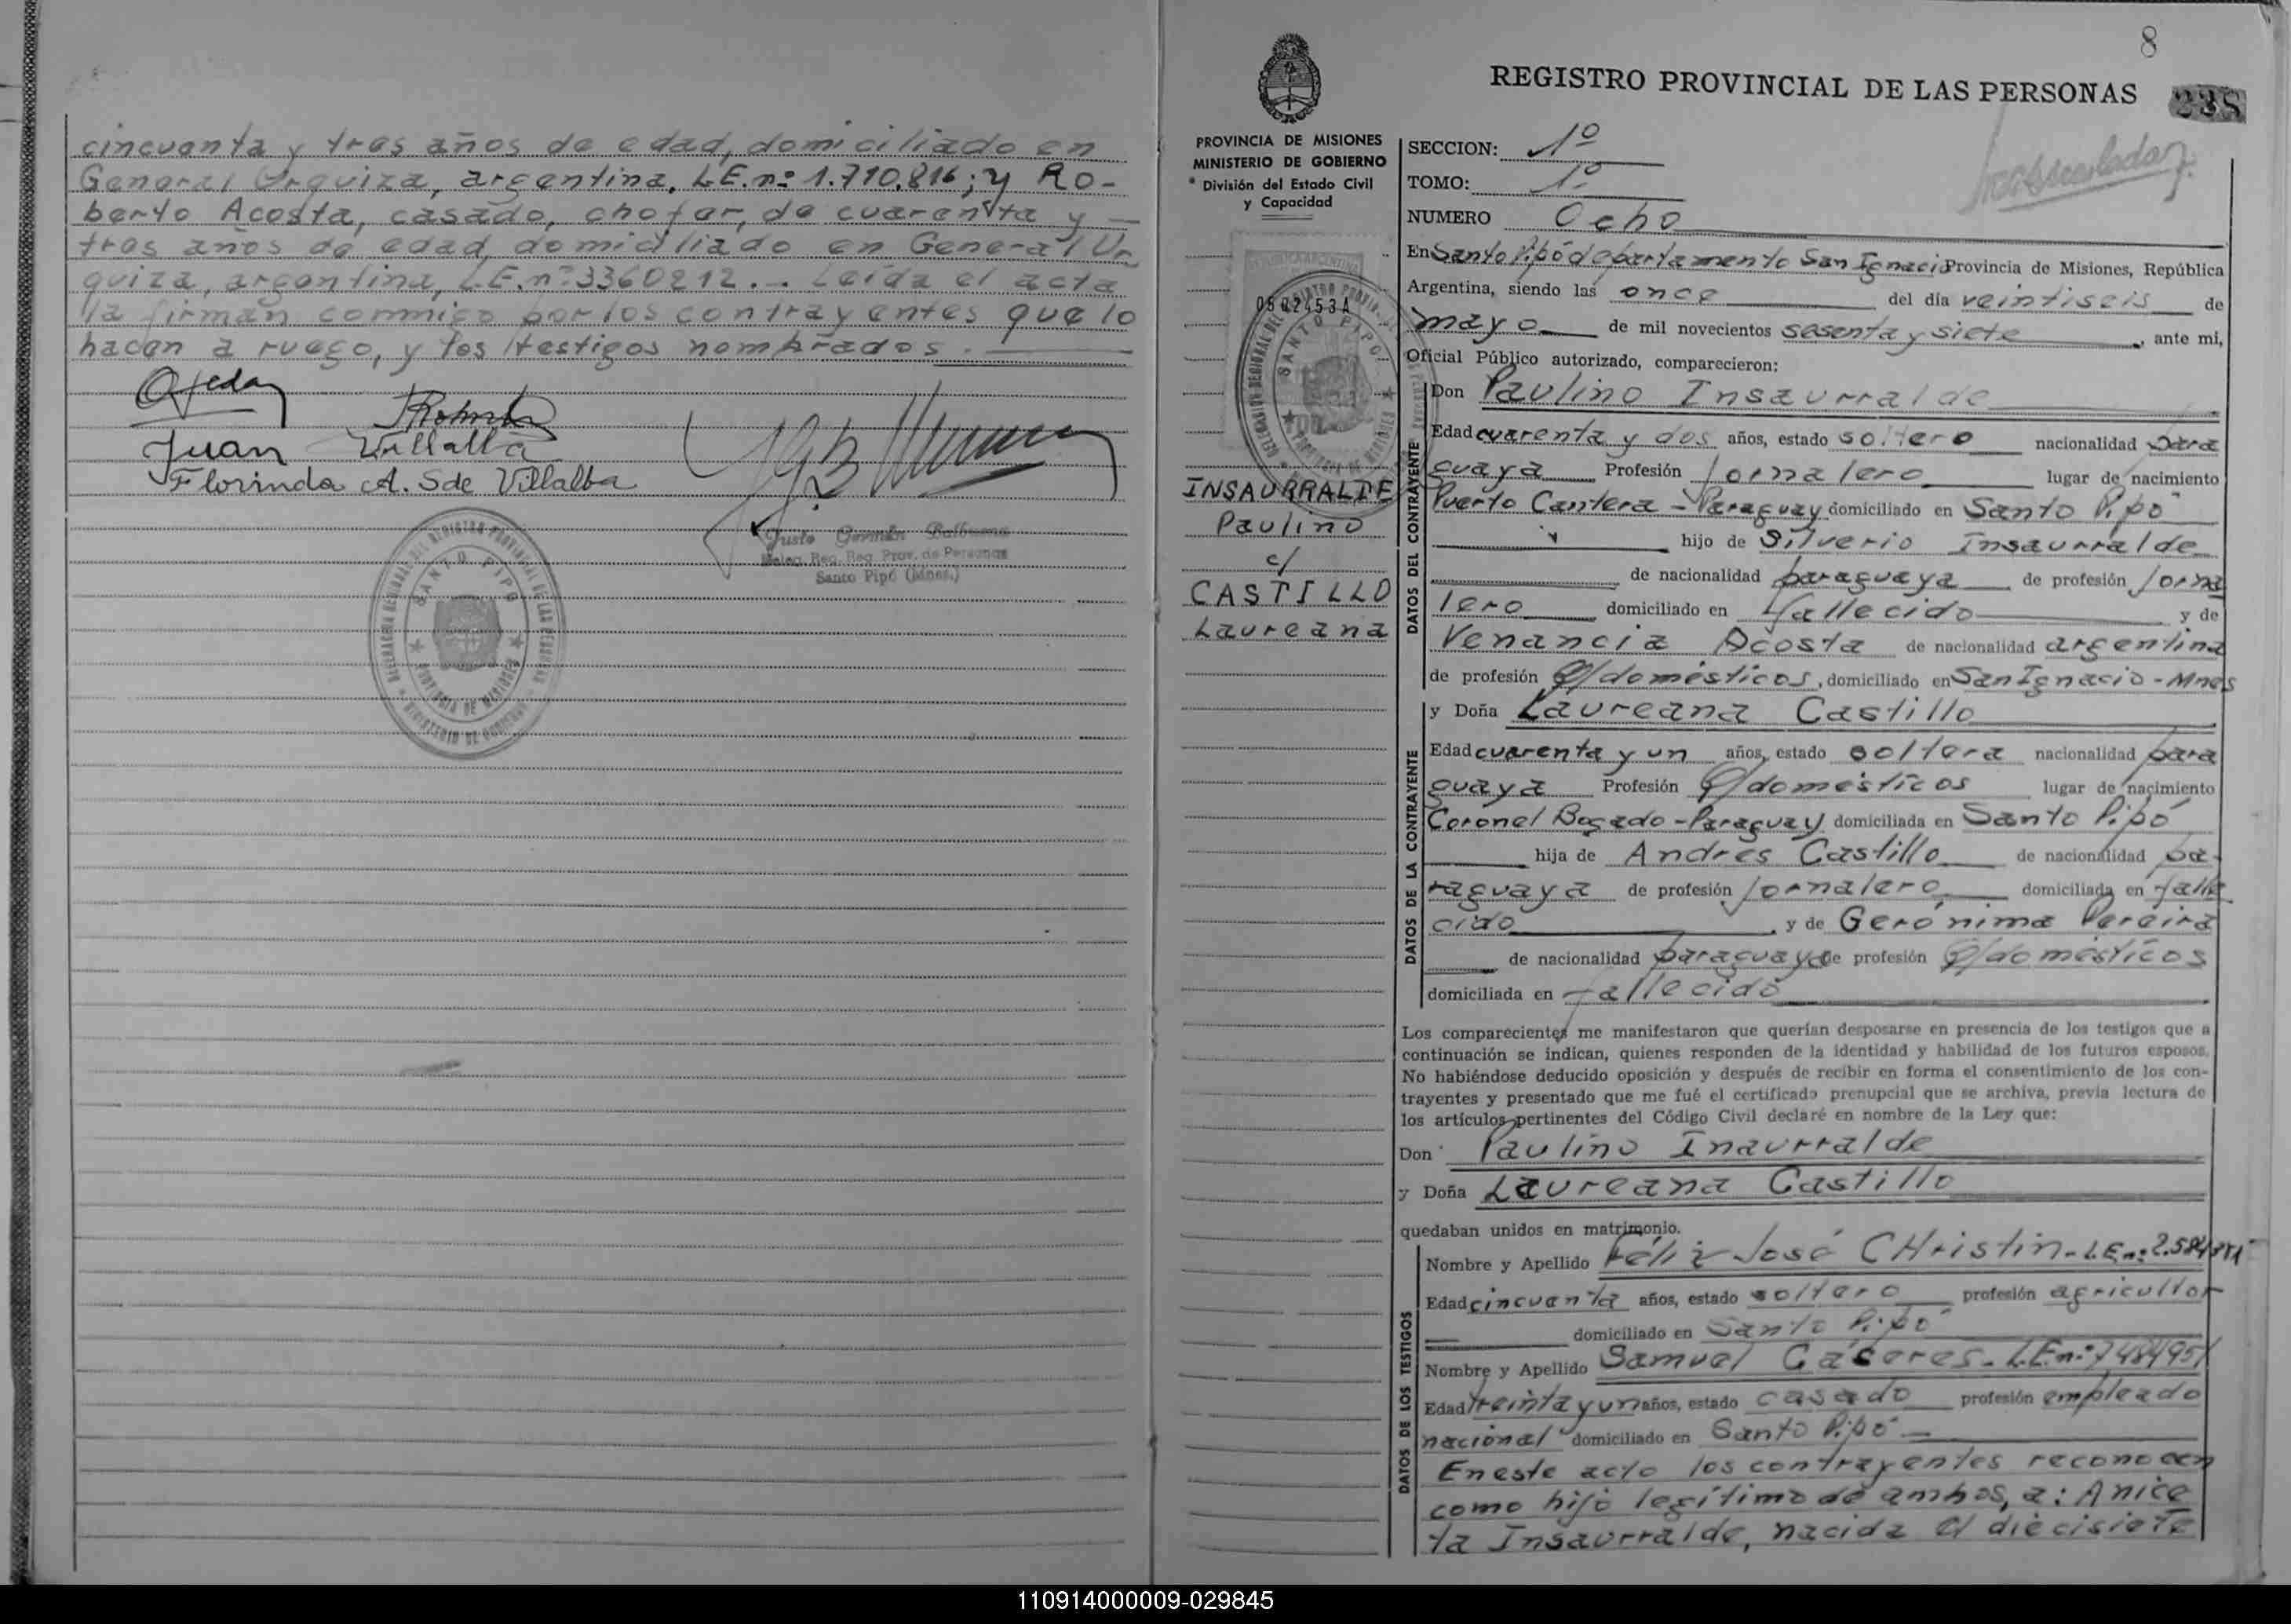 cincuenta y tres años de edad, domiciliado en
General Urquiza, argentina, L.E.nº 1.710.816; y Ro-
berto Acosta, casado, chofer, de cuarenta y —
tres años de edad, domiciliado en General Ur
quiza, argentina, L.E.nº 3360212.- Leída el acta
la firman conmigo por los contrayentes que lo
hacen a ruego, y los testigos nombrados.
Ojeda
Juan Villalba
Florinda A. S de Villalba
Justo Germán Balbuena
Santo Pipó (Mnes.)
SANTO PIPO
PROVINCIA DE MISIONES
8
REGISTRO PROVINCIAL DE LAS PERSONAS
238
PROVINCIA DE MISIONES
MINISTERIO DE GOBIERNO
División del Estado Civil
y Capacidad
0502453A
SANTO PIPO
INSAURRALDE
Paulino
c/
CASTILLO
Laureana
SECCION: 1º
TOMO: 1º
NUMERO Ocho
En Santo Pipó departamento San Ignacio Provincia de Misiones, República
Argentina, siendo las once del día veintiseis de
mayo de mil novecientos sesenta y siete, ante mi,
Oficial Público autorizado, comparecieron:
DATOS DEL CONTRAYENTE
Don Paulino Insaurralde
Edad cuarenta y dos años, estado soltero nacionalidad para
guaya Profesión jornalero lugar de nacimiento
Puerto Cantera - Paraguay domiciliado en Santo Pipó
hijo de Silverio Insaurralde
de nacionalidad paraguaya de profesión jorna
lero domiciliado en fallecido y de
Venancia Acosta de nacionalidad argentina
de profesión Q/domésticos, domiciliado en San Ignacio - Mnes
DATOS DE LA CONTRAYENTE
y Doña Laureana Castillo
Edad cuarenta y un años, estado soltera nacionalidad para
guaya Profesión Q/domésticos lugar de nacimiento
Coronel Bogado - Paraguay domiciliada en Santo Pipó
hija de Andrés Castillo de nacionalidad pa-
raguaya de profesión jornalero domiciliada en falle
cido, y de Gerónima Pereira
de nacionalidad paraguaya de profesión Q/domésticos
domiciliada en fallecido
Los comparecientes me manifestaron que querían desposarse en presencia de los testigos que a
continuación se indican, quienes responden de la identidad y habilidad de los futuros esposos.
No habiéndose deducido oposición y después de recibir en forma el consentimiento de los con-
trayentes y presentado que me fué el certificado prenupcial que se archiva, previa lectura de
los artículos pertinentes del Código Civil declaré en nombre de la Ley que:
Don Paulino Inaurralde
y Doña Laureana Castillo
quedaban unidos en matrimonio.
DATOS DE LOS TESTIGOS
Nombre y Apellido Féliz José CHristin - L.E.nº 2.584
Edad cincuenta años, estado soltero profesión agricultor
domiciliado en Santo Pipó
Nombre y Apellido Samuel Cáceres - L.E.nº 7484951
Edad treinta y un años, estado casado profesión empleado
nacional domiciliado en Santo Pipó
En este acto los contrayentes reconocen
como hijo legítimo de ambos, a: Anice
ta Insaurralde, nacida el diecisiete
110914000009-029845